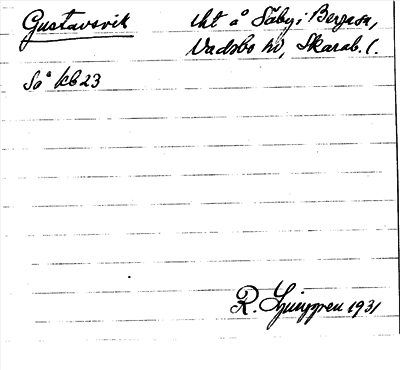 Gustavsvik
lht å Säby i Bergasn,
Vadsbo hd, Skarab. l.
So° kb 23
R. Ljunggren 1931